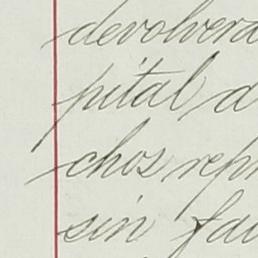 devolverá
pital d
chos repr
sin fal